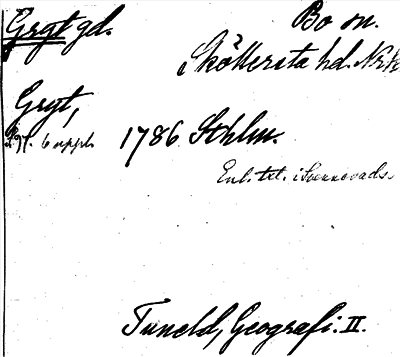 Grgt gd. Bo sn.
Sköllersta hd. Nrk
Gryt,
6 uppl. 1786 Sthlm.
Enl. txt. i Svennevads.
Tuneld, Geografi. II.